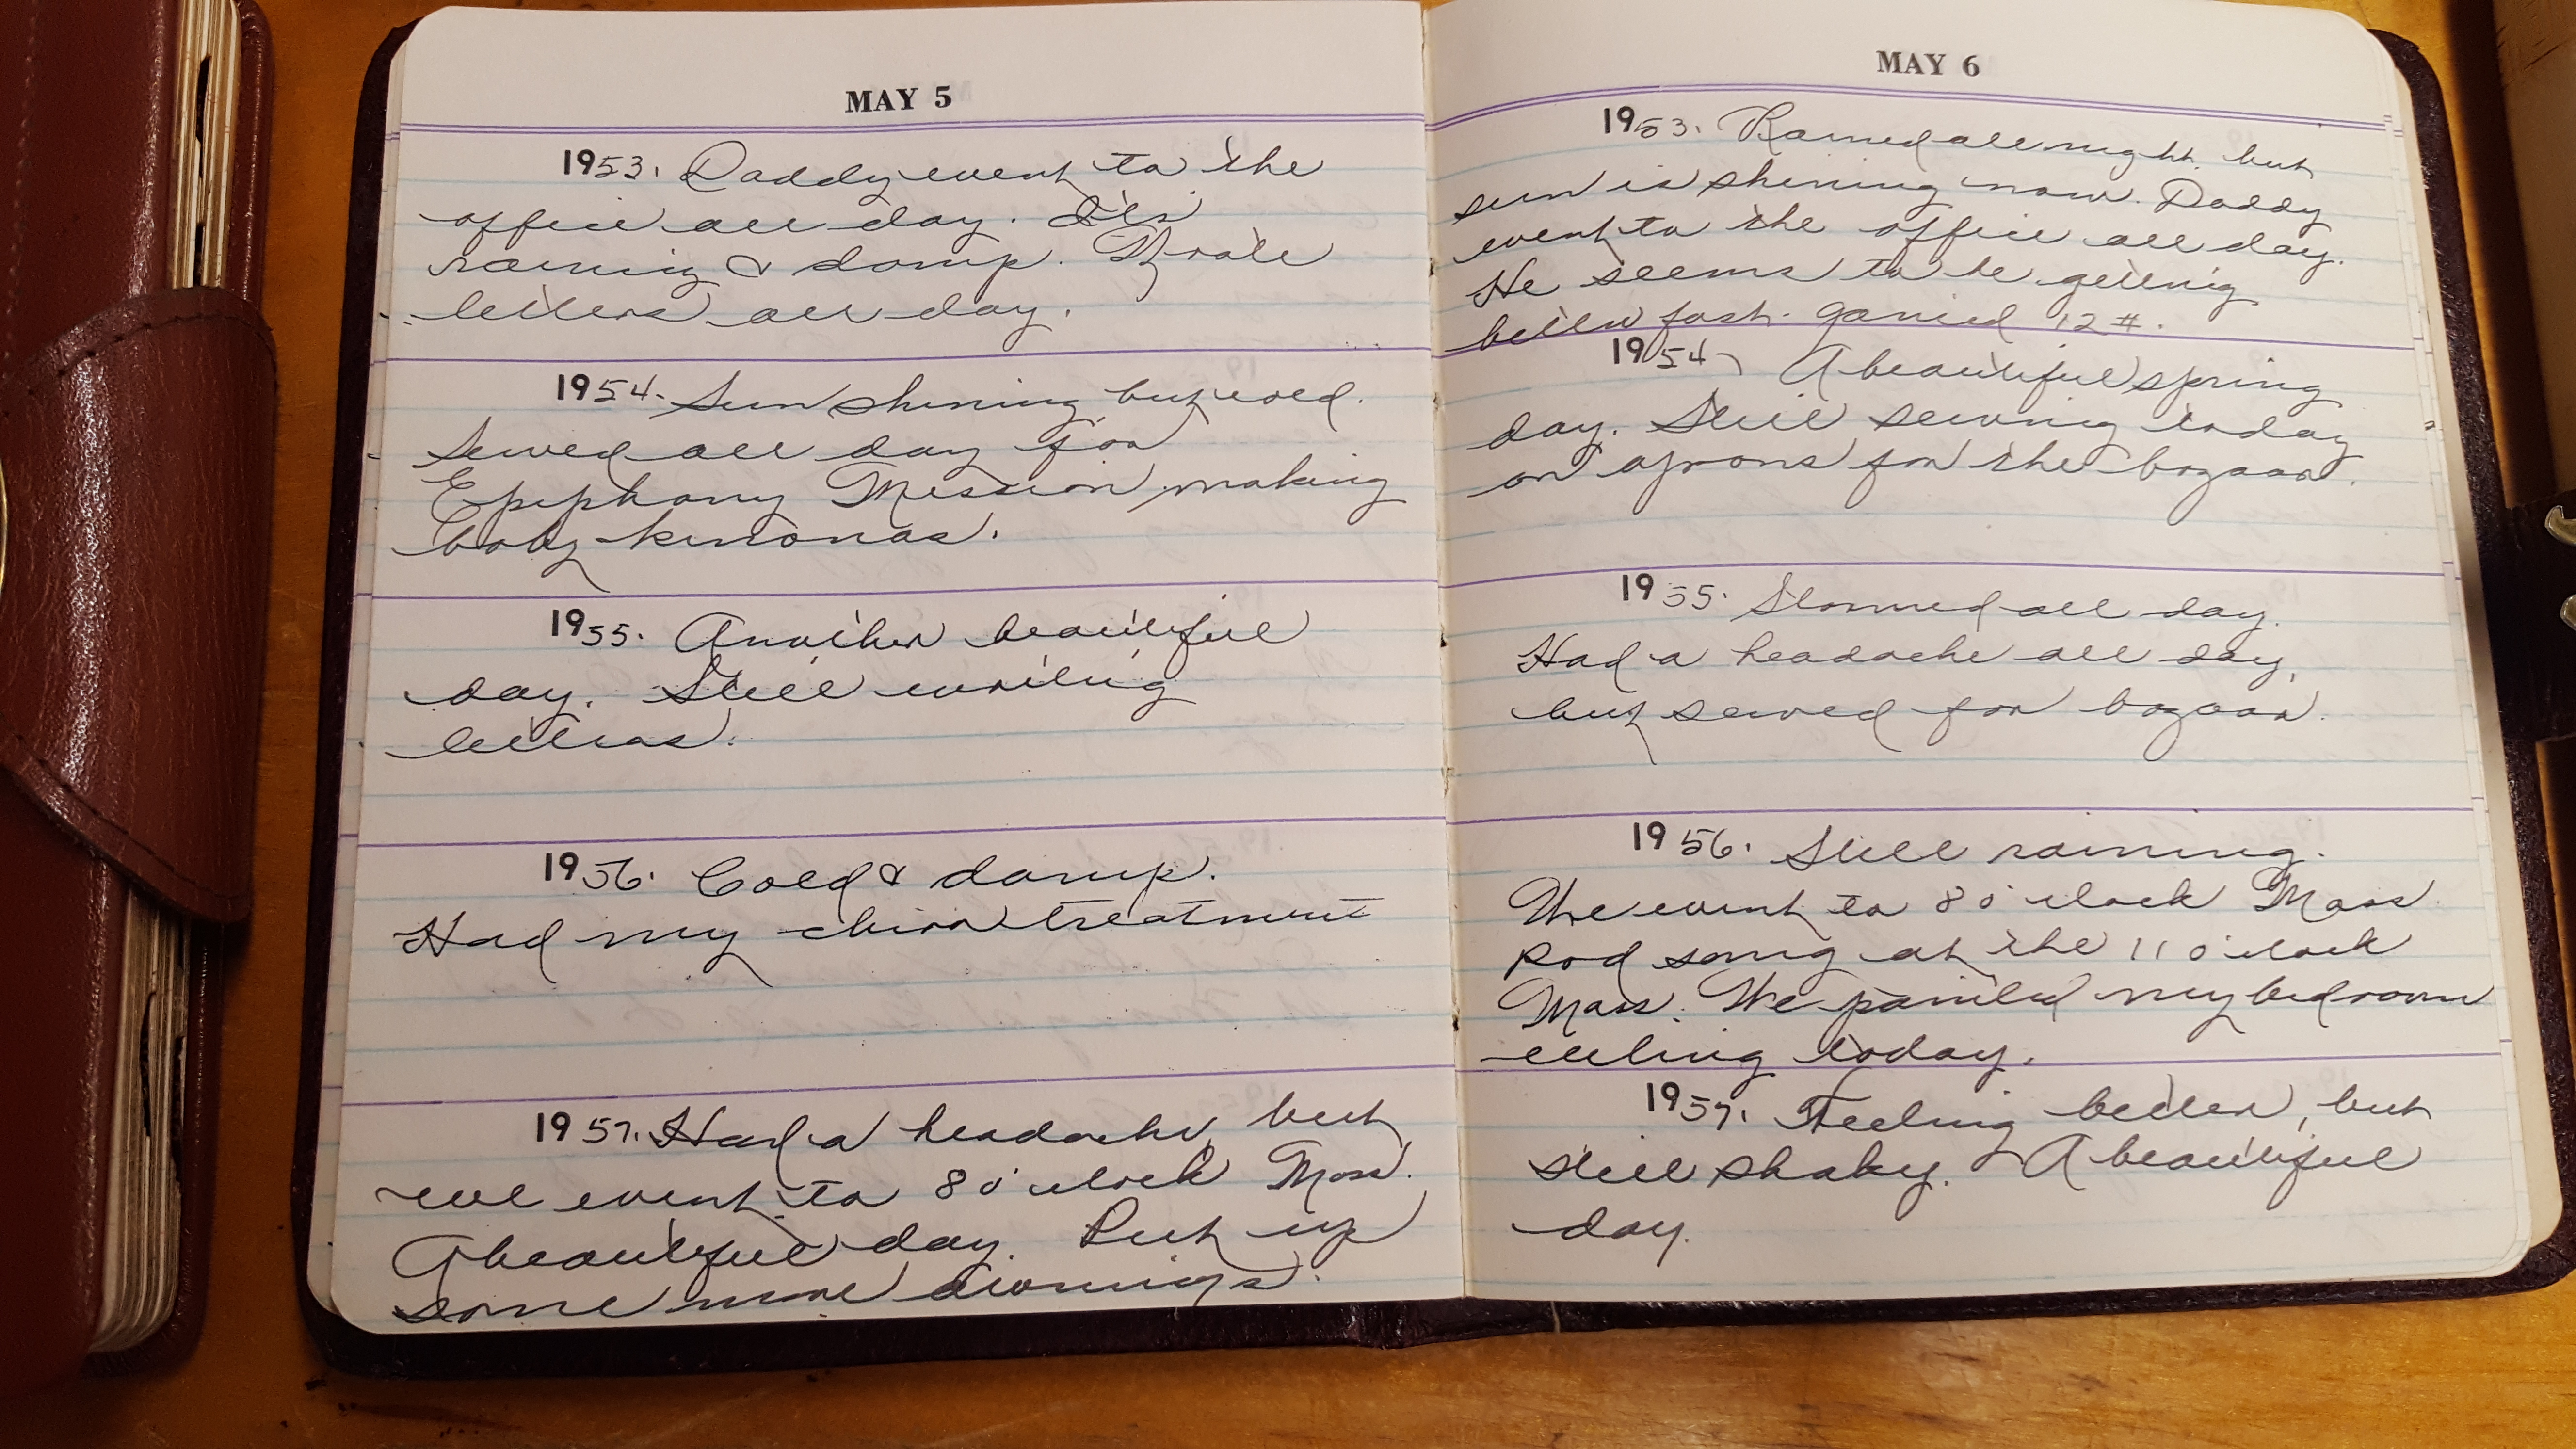 MAY 5
1953. Daddy went to the
office all day. It's
raining & damp. Wrote
letters all day.
1954. Sun shining but cold.
Sewed all day for
Epiphany Mission, making
baby kimonas.
1955. Another beautiful
day. Still writing
letters.
1956. Cold & damp.
Had my chiro treatment
1957. Had a headache, but
we went to 8 o'clock Mass.
A beautiful day. Put up
some more awnings.
MAY 6
1953. Rained all night but
sun is shining now. Daddy
went to the office all day.
He seems to be getting
better fast. gained 12 #.
1954 A beautiful spring
day. Still sewing today
on aprons for the bazaar.
1955. Stormed all day.
Had a headache all day,
but sewed for bazaar.
1956. Still raining.
We went to 8 o'clock Mass
Rod sang at the 11 o'clock
Mass. We painted my bedroom
ceiling today.
1957. Feeling better, but
still shaky. A beautiful
day.